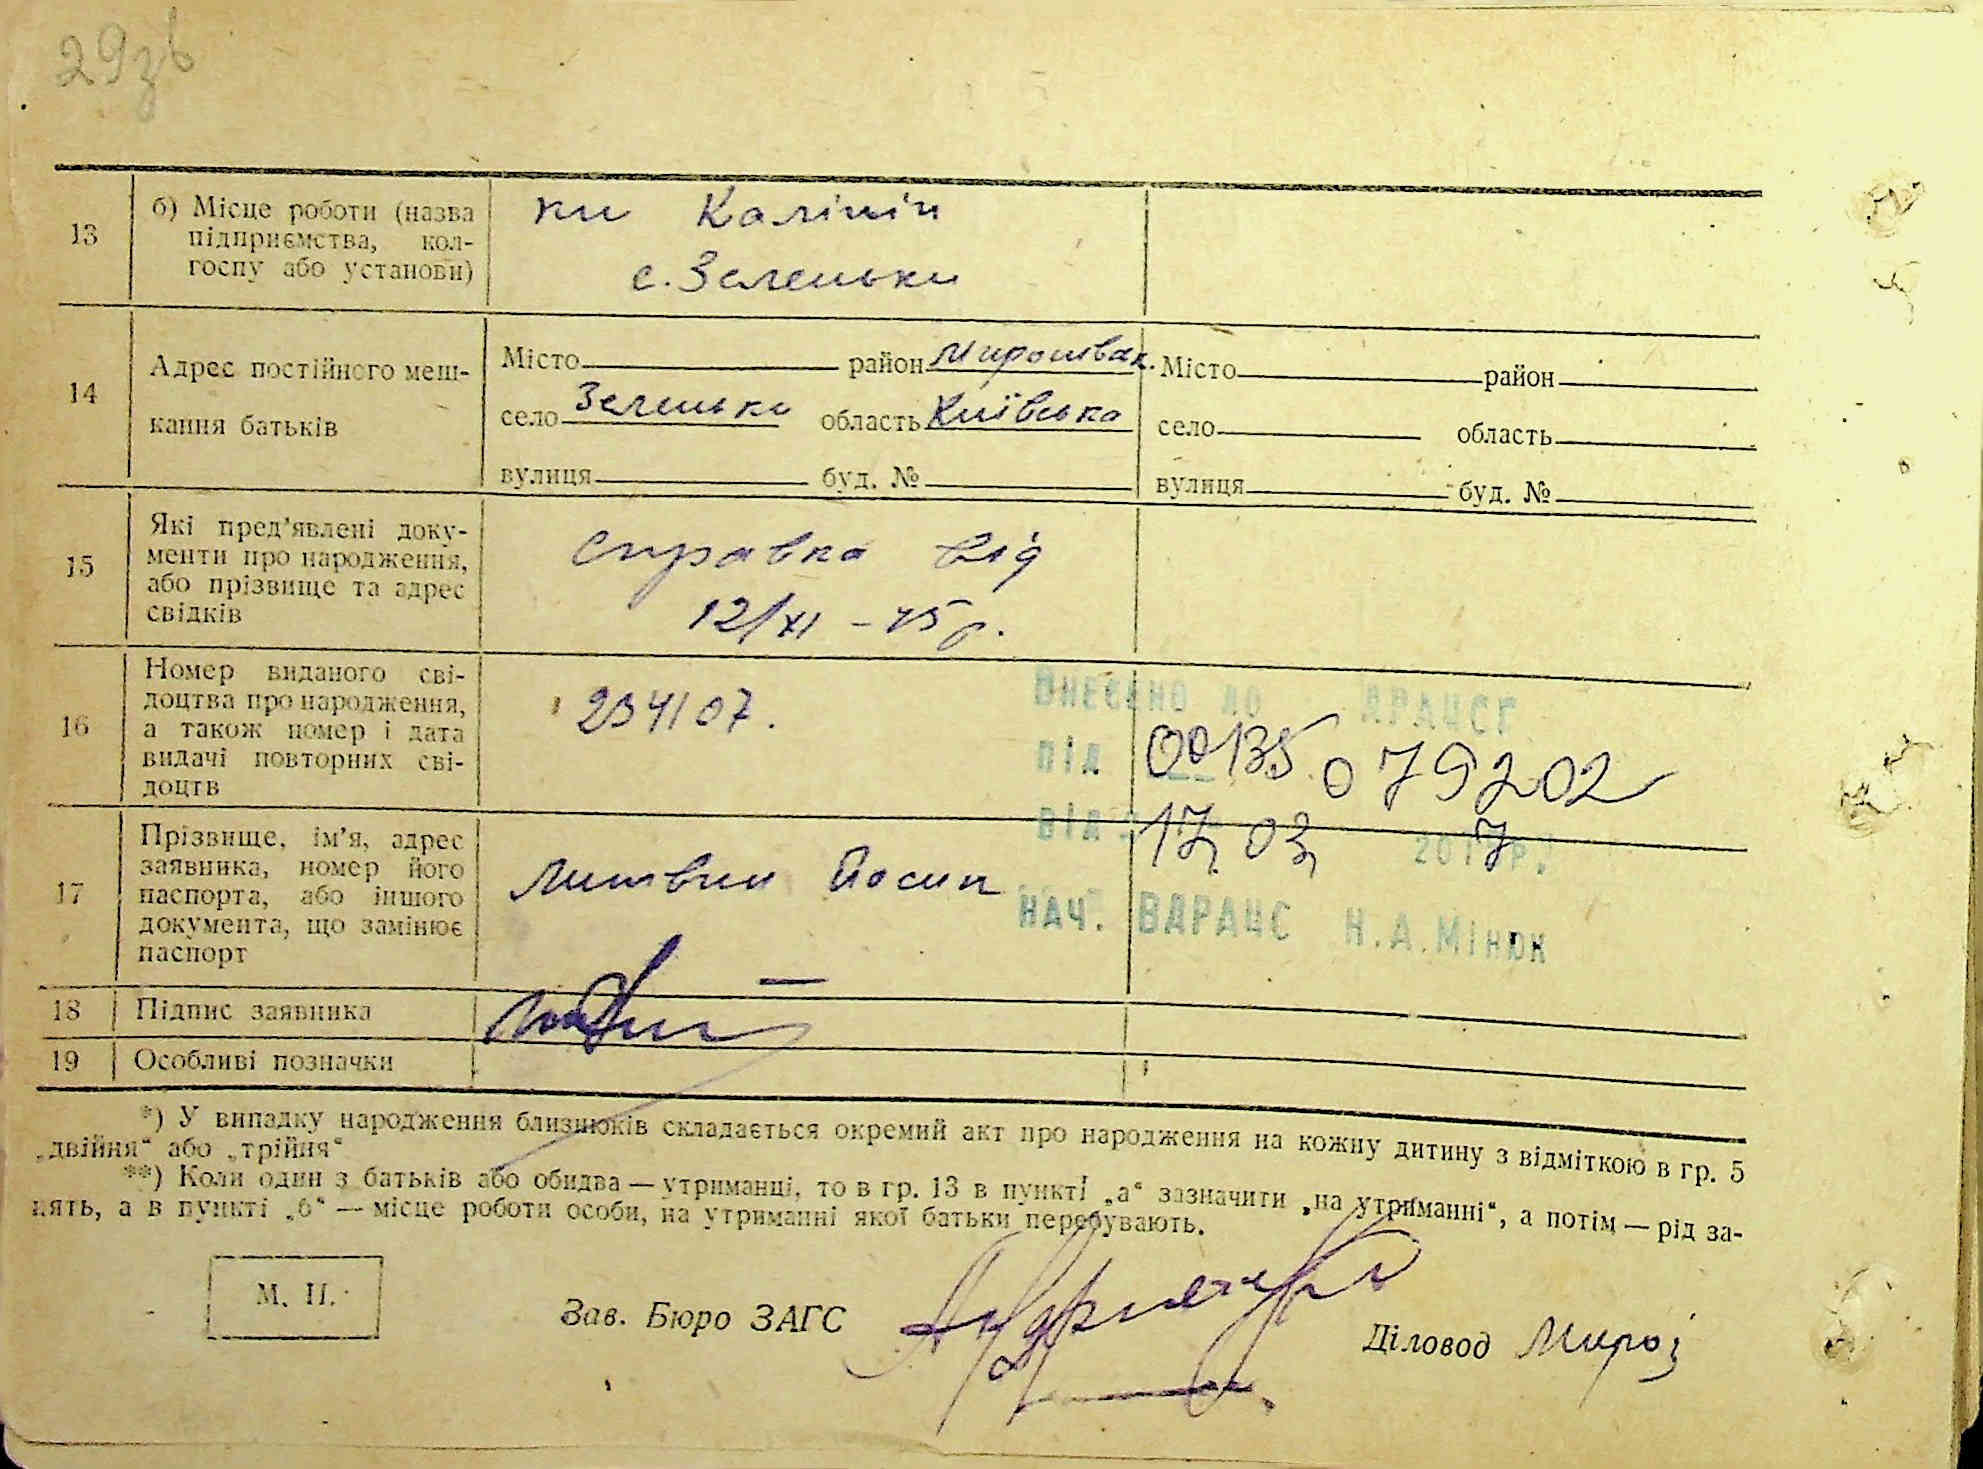 29зв
13
б) Місце роботи (назва
підприємства, кол-
госпу або установи)
ки Калінін
с. Зеленьки
14
Адрес постійного меш-
кання батьків
Місто район Миронівськ. Місто район
село Зеленьки область Київська село область
вулиця буд. № вулиця буд. №
15
Які пред’явлені доку-
менти про народження,
або прізвище та адрес
свідків
Справка від
12/XI – 45 р.
16
Номер виданого сві-
доцтва про народження,
а також номер і дата
видачі повторних сві-
доцтв
234107.
ВНЕСЕНО ДО ДРАЦСГ
ПІД 00135 079202
ВІД 17.03. 2017 р.
НАЧ. ВДРАЦС Н.А.МІНЮК
17
Прізвище, ім’я, адрес
заявника, номер його
паспорта, або іншого
документа, що замінює
паспорт
Литвин Йосип
18 Підпис заявника
19 Особливі позначки
*) У випадку народження близнюків складається окремий акт про народження на кожну дитину з відміткою в гр. 5
„двійня“ або „трійня“
**) Коли один з батьків або обидва — утриманці, то в гр. 13 в пункті „а“ зазначити „на утриманні“, а потім — рід за-
нять, а в пункті „б“ — місце роботи особи, на утриманні якої батьки перебувають.
М. П.
Зав. Бюро ЗАГС
Діловод